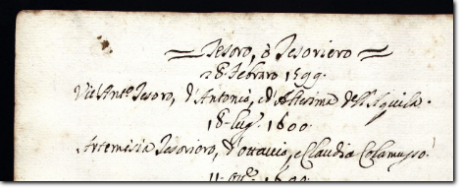 Tesoro, ò Tesoriero
28 Febraro 1599.
Vit' Ant.º Tesoro, d'Antonio, e d'Asterima dell'Aquila.
18 lug.º 1600.
Artemisia Tesoriero, d'Ottavio, e Claudia Colamusso.
11